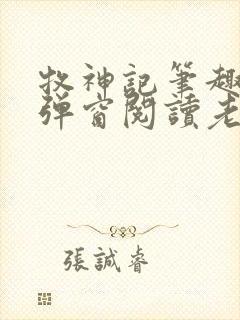 牧神記筆趣
彈窗閱讀老
張誠睿